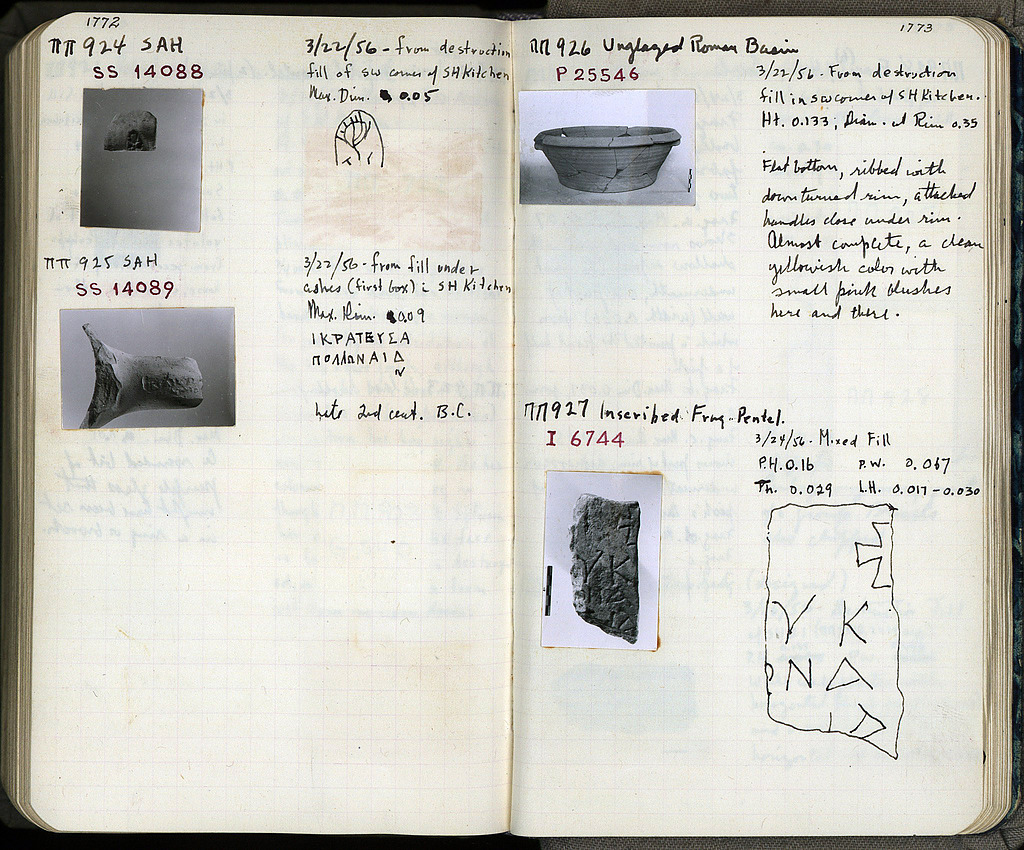 1772
ΠΠ 924 SAH
SS 14088
3/22/56 - from destruction
fill of SW corner of SH Kitchen
Max. Dim. 0.05
ΠΠ 925 SAH
SS 14089
3/22/56 - from fill under
ashes (first box) : SH Kitchen
Max. Dim. 0.09
ΙΚΡΑΤΕΥΣΑ
ΠΟΛΛΩΝΑΙΔ
N
Late 2nd cent. B.C.
1773
ΠΠ 926 Unglazed Roman Basin
P 25546
3/22/56 - From destruction
fill in SW corner of SH Kitchen.
Ht. 0.133; Diam. at Rim 0.35
Flat bottom, ribbed with
downturned rim, attached
handles close under rim.
Almost complete, a clean
yellowish color with
small pink blushes
here and there.
ΠΠ 927 Inscribed Frag. Pental.
I 6744
3/24/56 - Mixed Fill
P.H. 0.16 P.W. 0.067
Th. 0.029 L.H. 0.017-0.030
Υ Κ
Ν Δ